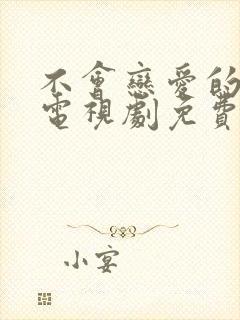 不會戀愛的
電視劇免費
小宴